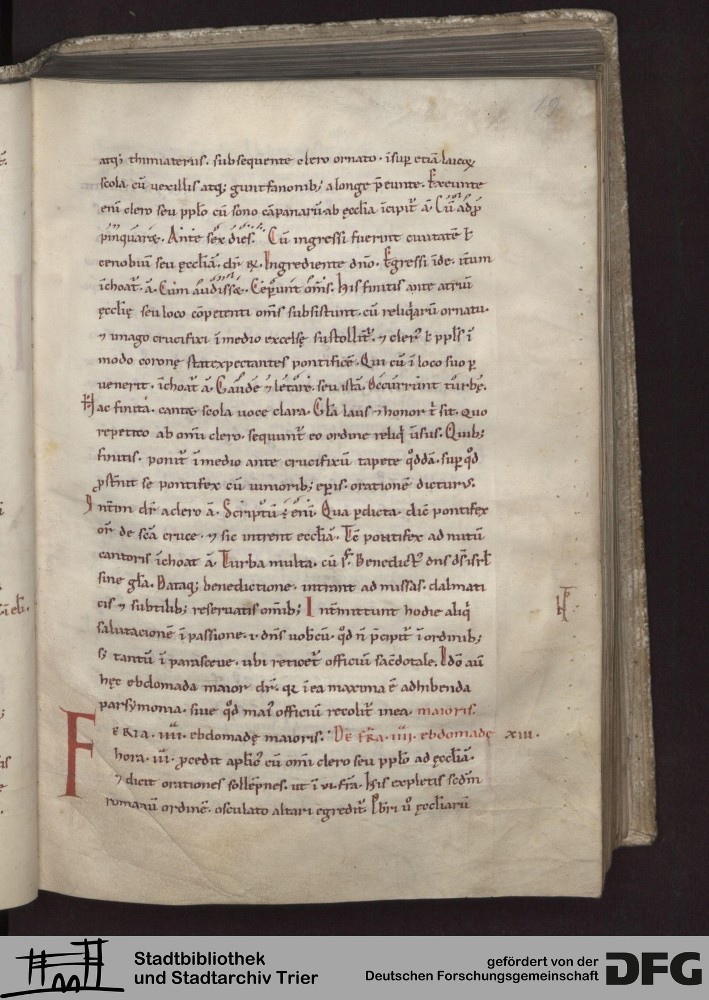 18
atq; thimiateriis. subsequente clero ornato. insup etiā laicoꝝ
scola cū uexillis atq; guntfanonib; a longe p̄eunte. Exeunte
enī clero seu pplo cū sono cāpanarū ab ęcclīa īcipit᷑ ā. Cū adp̄
pīnquaręt. Ante sex dies. Cū ingressi fuerint ciuitatē ł
cenobiū seu ęccl̄iā. dr̄ ꝶ. Ingrediente dn̄o. Egressi īde. itūm
īchoat᷑. ā. Cum audisset. Ceperunt om̄s. His finitis ante atriū
ęccl̄ię seu loco cōpetenti om̄s subsistunt. cū reliq̄arū ornatu.
⁊ imago crucifixi ī medio excelsę sustollit᷑. ⁊ cler᷒ ł ppl̄s ī
modo coronę stat expectantes pontificē. Qui cū ī loco suo p
uenerit. īchoat᷑ ā. Gaudete ⁊ letare. seu istā. Occurrunt turbę.
Hac finita. cantat scola uoce clara. Gl̄a laus ⁊ honor t̄ sit. quo
repetito ab om̄i clero. sequunt᷑ eo ordine reliq̄ uersus. Quib;
finitis. ponit᷑ ī medio ante crucifixū tapete q̄ddā. sup q̄d
p̄st̄nit se pontifex cū iuniorib; ep̄is. orationē dicturus.
Int̄im dr̄ a clero ā. Scriptū ē enī. Qua pdicta. dic̄ pontifex
or̄ de sc̄a cruce. ⁊ sic intrent ecc̄liā. Tc̄ pontifex ad nutū
cantoris īchoat ā. Turba multa. cū ps̄. Benedict᷒ dn̄s ds̄ isrł
sine gl̄a. Dataq; benedictione. intrant ad missas. dalmati
cis ⁊ subtilib; reseruatis om̄ib; Int̄mittunt hodie aliq̄
salutationē ī passione. i. dn̄s uobcū. q̄d n̄ p̄cipit᷑ ī ordinib;
s; tantū ī parasceue. ubi reticet᷑ officiū sac̄dotale. Idō aū
hęc ebdomada maior dr̄. qꝛ ī ea maxima ē adhibenda
parsymonia. siue q̄d mai᷒ officiū recolit᷑ in ea. maioris.
FERIA. IIII. ebdomadę maioris. DE fr̄a. IIII. ebdomadę XIII.
hora. III. p̄cedit apl̄ic᷒ cū om̄i clero seu pplo ad ęccl̄iā.
⁊ dicit orationes sollēpnes. ut ī VI. fr̄a. His expletis sc̄dm
romanū ordinē. osculato altari egredit᷑. Pb̄ri u̅ ęccl̄iarū
Stadtbibliothek
und Stadtarchiv Trier
gefördert von der
Deutschen Forschungsgemeinschaft
DFG